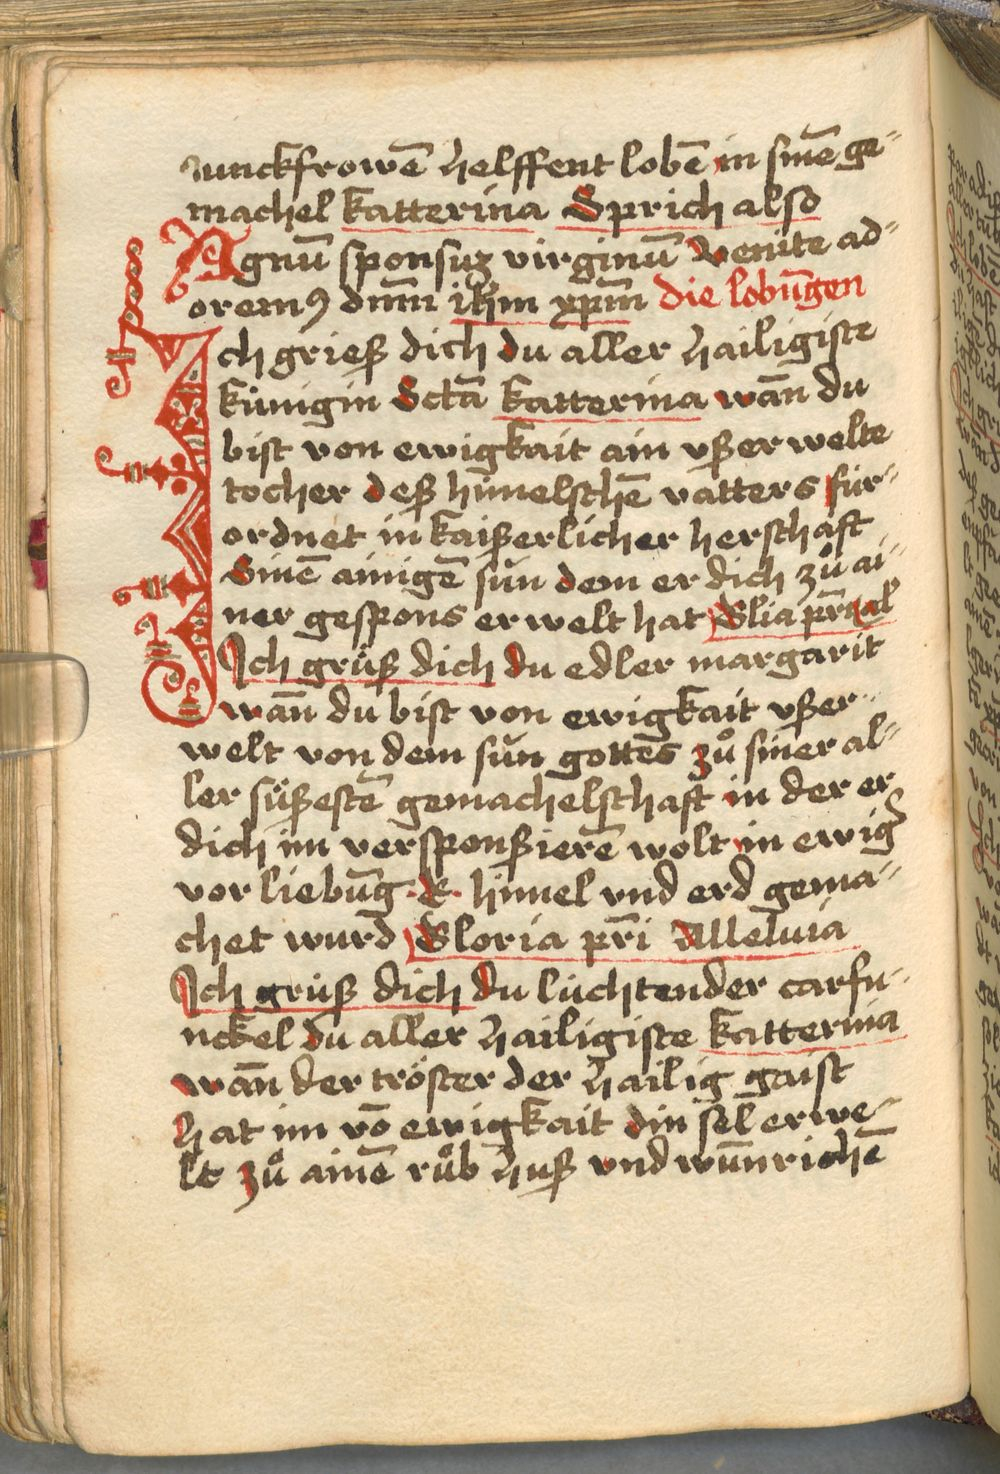 Junckfrowē helffent lobē in sinē ge-
machel katterina Sprich also
Agnū sponsuʒ virginū Venite ad-
oremꝰ dn̄m ihm̄ xp̄m die lobūgen
Ich grieß dich du aller hailigiste
künigin Sctā katterina wān du
bist von ewigkait ain vßerwelte
tocher deß himelschē vatters für-
ordnet in kaißerlicher herschaft
Sinē ainigē sŭn dem er dich zů ai-
ner gespons erwelt hat Glia pr̄i al
Ich grüß dich du edler margarit
wān du bist von ewigkait vßer-
welt von dem sŭn gottes zů siner al-
ler süßestē gemachelschaft in der er
dich im versponßierē wolt in ewig
vor liebūg ·E· himel vnd erd gema-
chet wurd Gloria pr̄i Alleluia
Ich grüß dich du lüchtender carfu-
nckel du aller hailigiste katterina
wān der tröster der hailig gaist
hat im vō ewigkait din sel erwe-
lt zů ainē růb huß vnd wūnrichē